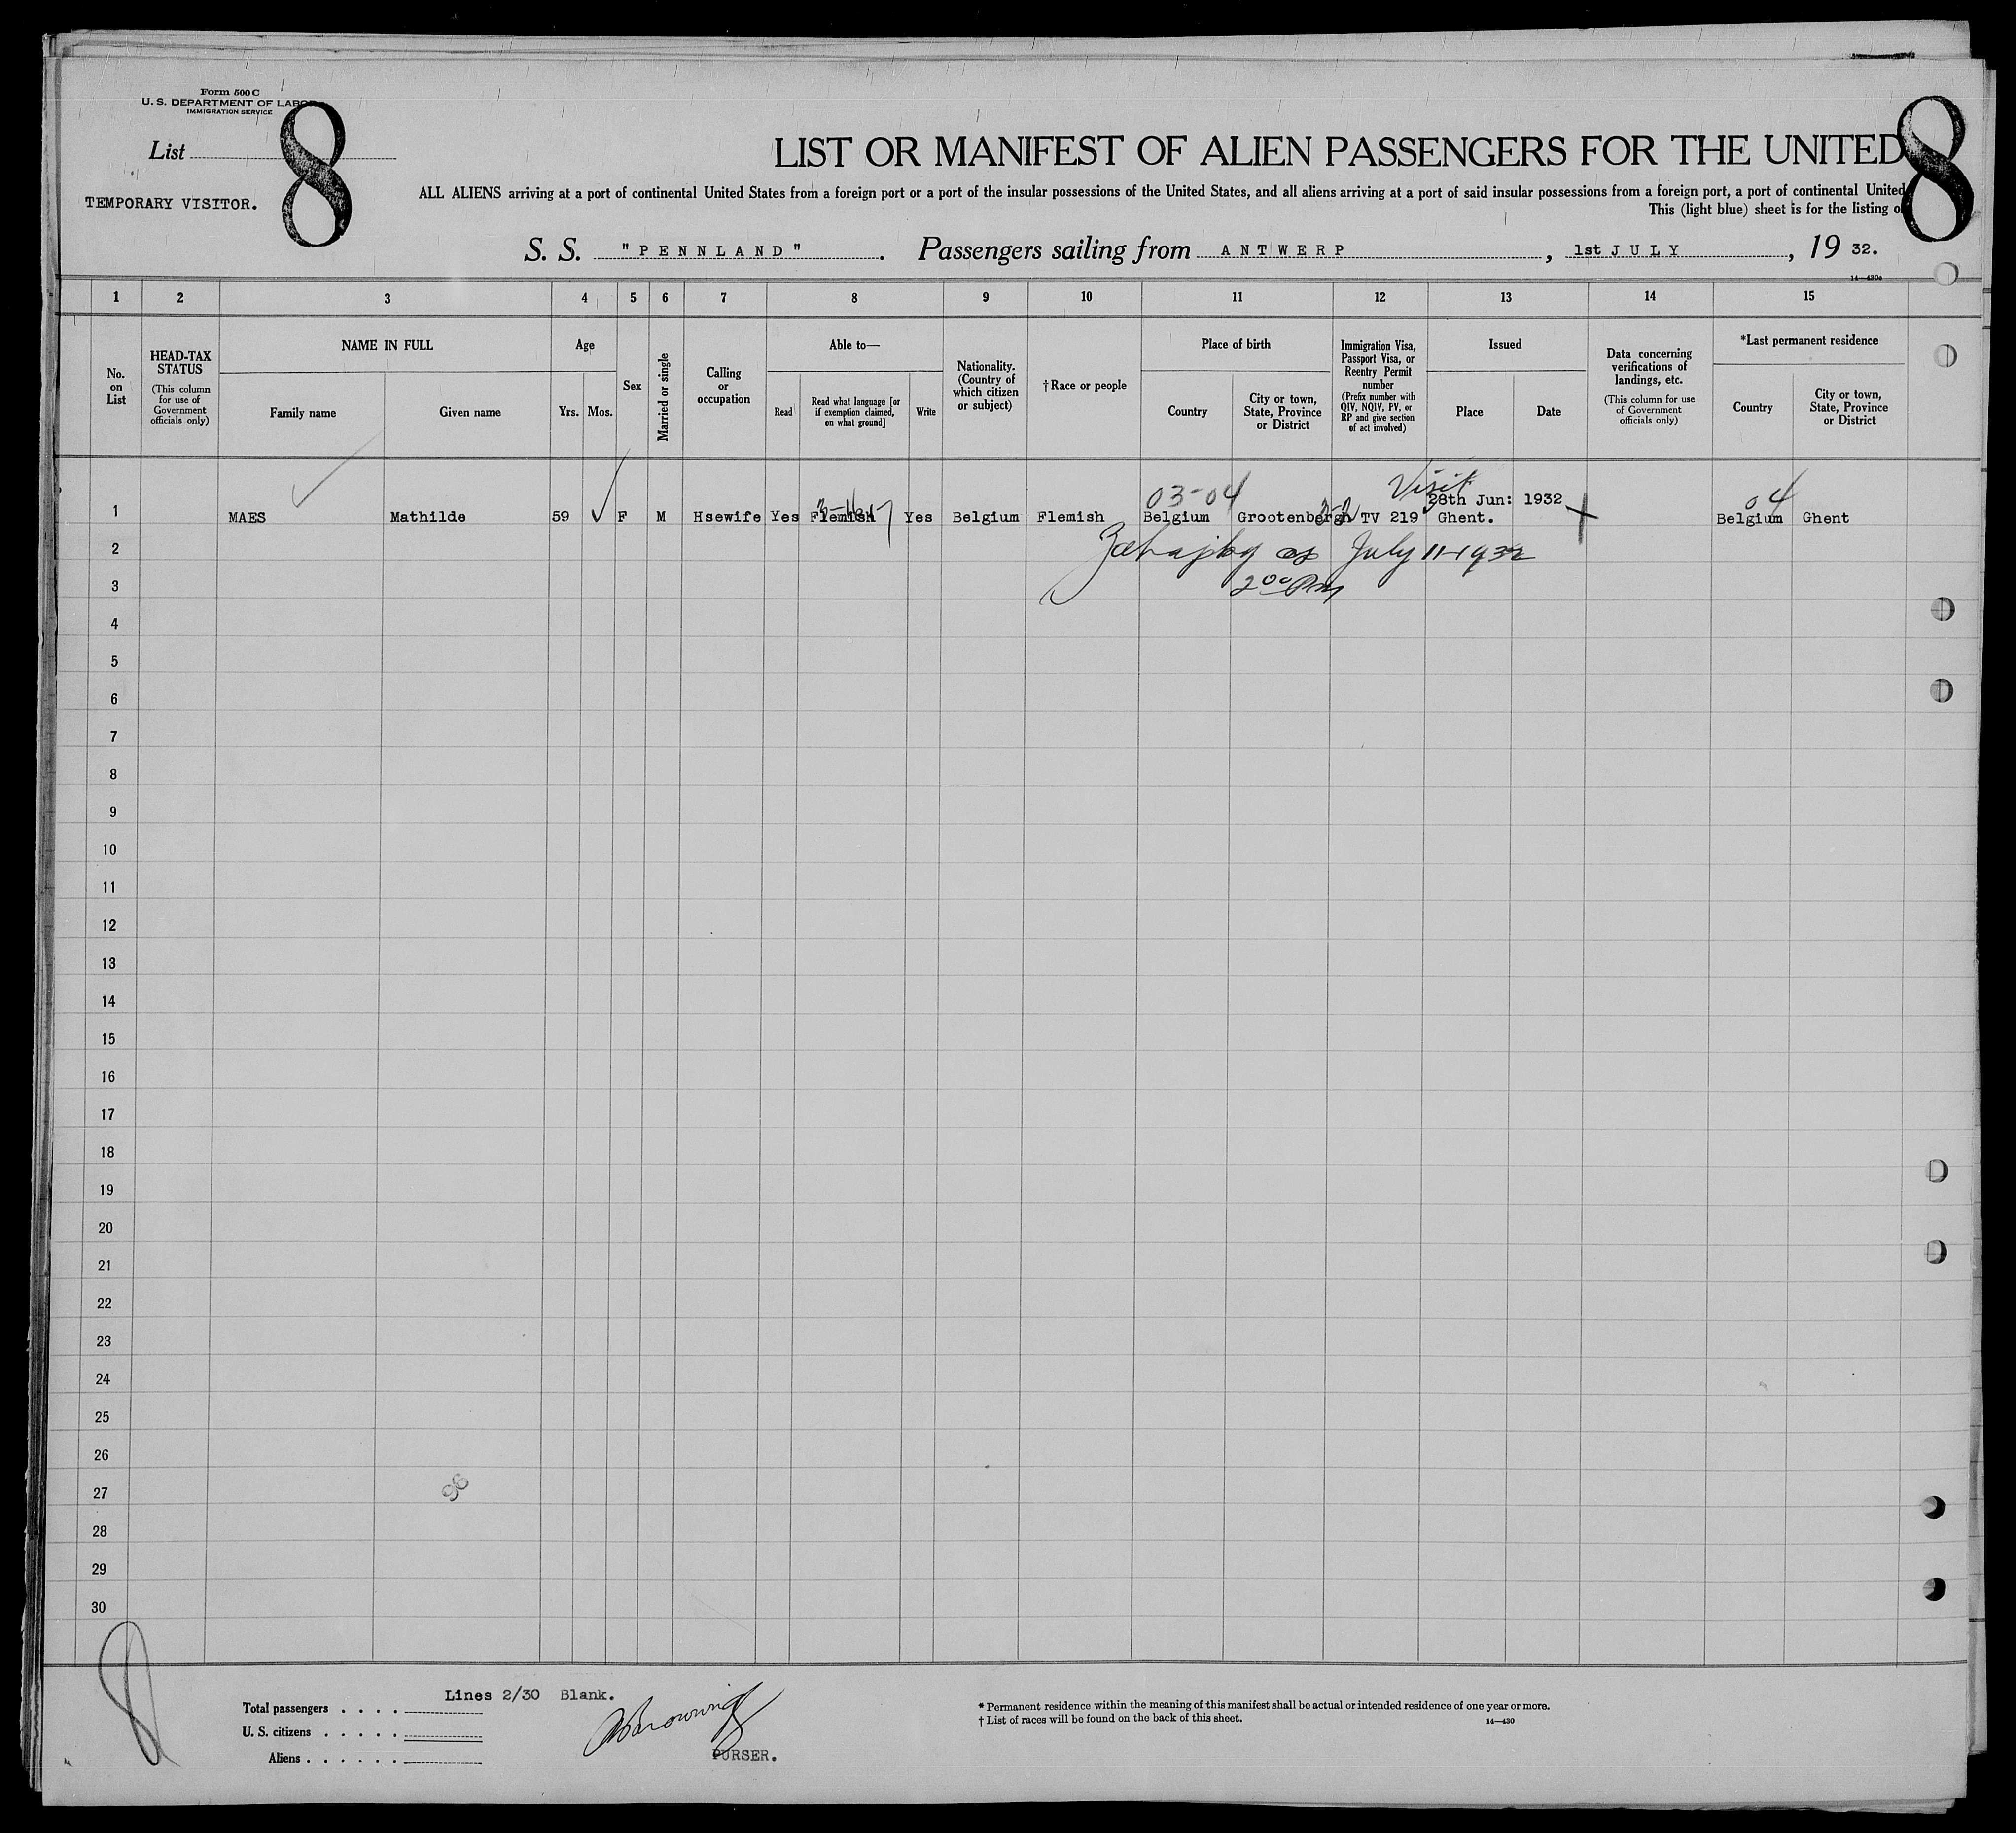 Form 500 C
U. S. DEPARTMENT OF LABOR
IMMIGRATION SERVICE
List
8
8
TEMPORARY VISITOR.
LIST OR MANIFEST OF ALIEN PASSENGERS FOR THE UNITED
ALL ALIENS arriving at a port of continental United States from a foreign port or a port of the insular possessions of the United States, and all aliens arriving at a port of said insular possessions from a foreign port, a port of continental United
This (light blue) sheet is for the listing
S. S. "PENNLAND". Passengers sailing from ANTWERP, 1st JULY, 19 32.
1 2 3 4 5 6 7 8 9 10 11 12 13 14 15
No. on List
HEAD-TAX STATUS
(This column for use of Government officials only)
NAME IN FULL
Family name
Given name
Age
Yrs.
Mos.
Sex
Married or single
Calling or occupation
Able to—
Read
Read what language [or if exemption claimed, on what ground]
Write
Nationality. (Country of which citizen or subject)
†Race or people
Place of birth
Country
City or town, State, Province or District
Immigration Visa, Passport Visa, or Reentry Permit number
(Prefix number with QIV, NQIV, PV, or RP and give section of act involved)
Issued
Place
Date
Data concerning verifications of landings, etc.
(This column for use of Government officials only)
*Last permanent residence
Country
City or town, State, Province or District
03-04 Visit 04
28th Jun: 1932
1 MAES Mathilde 59 F M Hsewife Yes Flemish Yes Belgium Flemish Belgium Grootenbergh TV 219 Ghent. Belgium Ghent
2 July 11-1932
3 2 00 PM
4
5
6
7
8
9
10
11
12
13
14
15
16
17
18
19
20
21
22
23
24
25
26
27
28
29
30
8
Lines 2/30 Blank.
Total passengers . . . .
U. S. citizens . . . . .
Aliens . . . . . .
PURSER.
* Permanent residence within the meaning of this manifest shall be actual or intended residence of one year or more.
† List of races will be found on the back of this sheet.
14—430